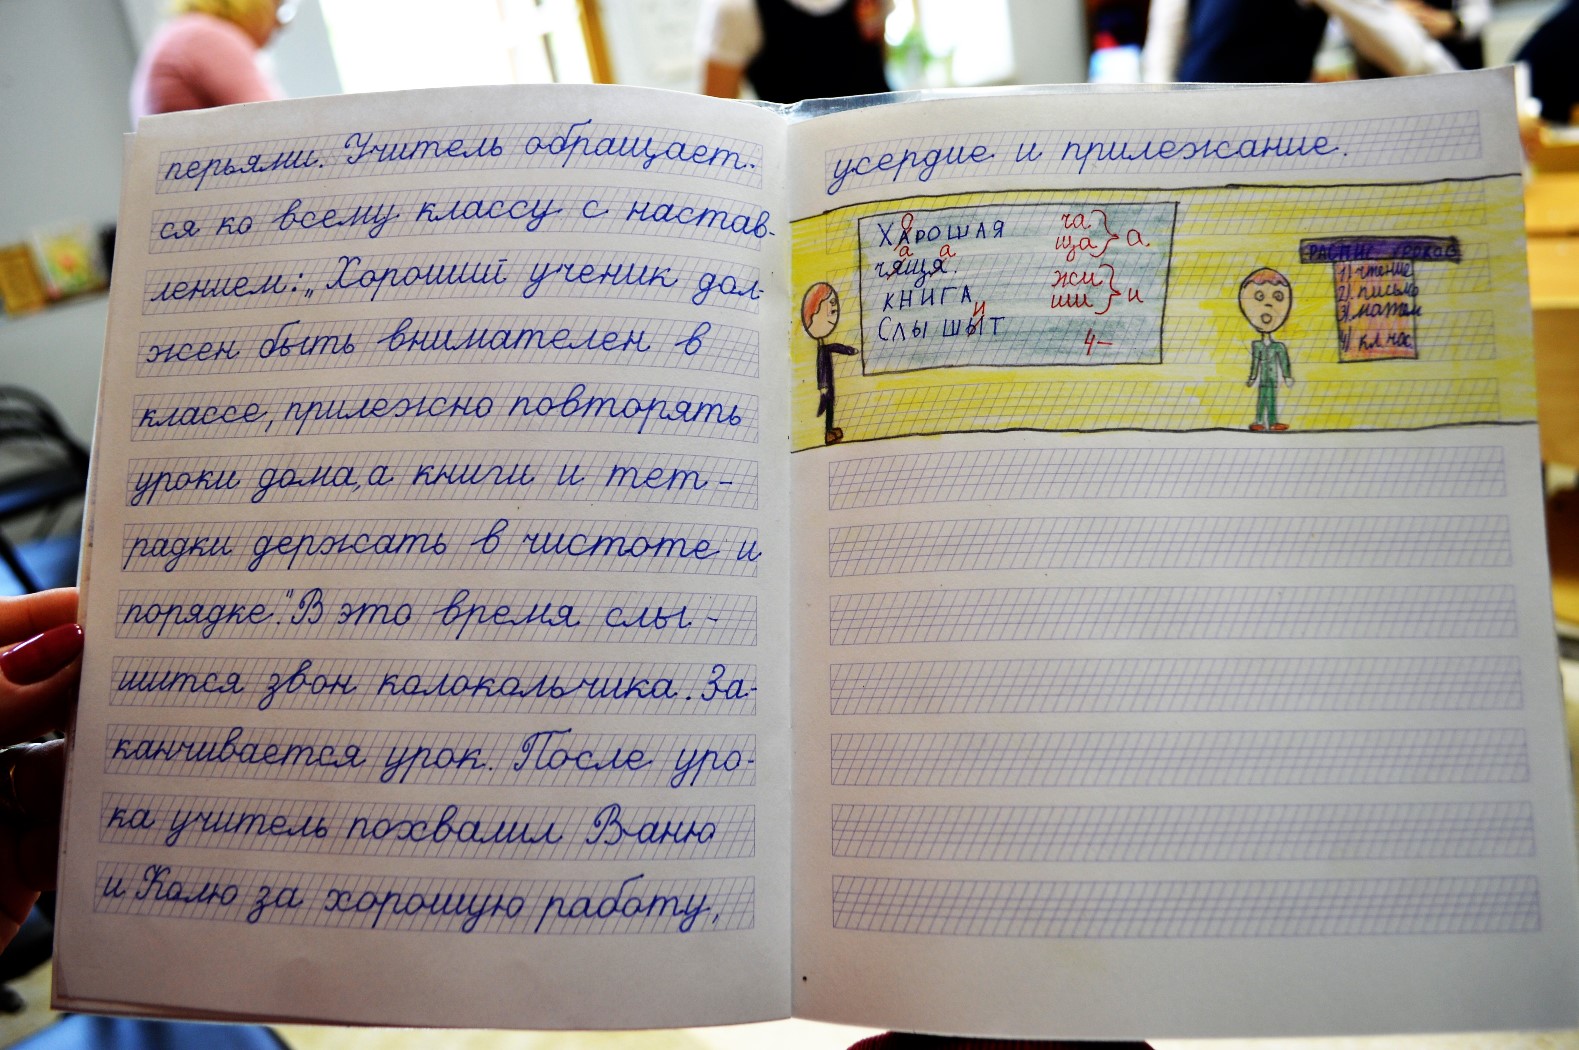 перьями. Учитель обращает-
ся ко всему классу с настав-
лением: „Хороший ученик дол-
жен быть внимателен в
классе, прилежно повторять
уроки дома, а книги и тет-
радки держать в чистоте и
порядке." В это время слы-
шится звон колокольчика. За-
канчивается урок. После уро-
ка учитель похвалил Ваню
и Колю за хорошую работу,
усердие и прилежание.
ХАРОШАЯ
о
чящя.
а а
КНИГА
СЛЫШЫТ
и
ча
ща } а.
жи
ши } и
4-
РАСПИС УРОКОВ
1) чтение
2) письмо
3) матем
4) кл. час